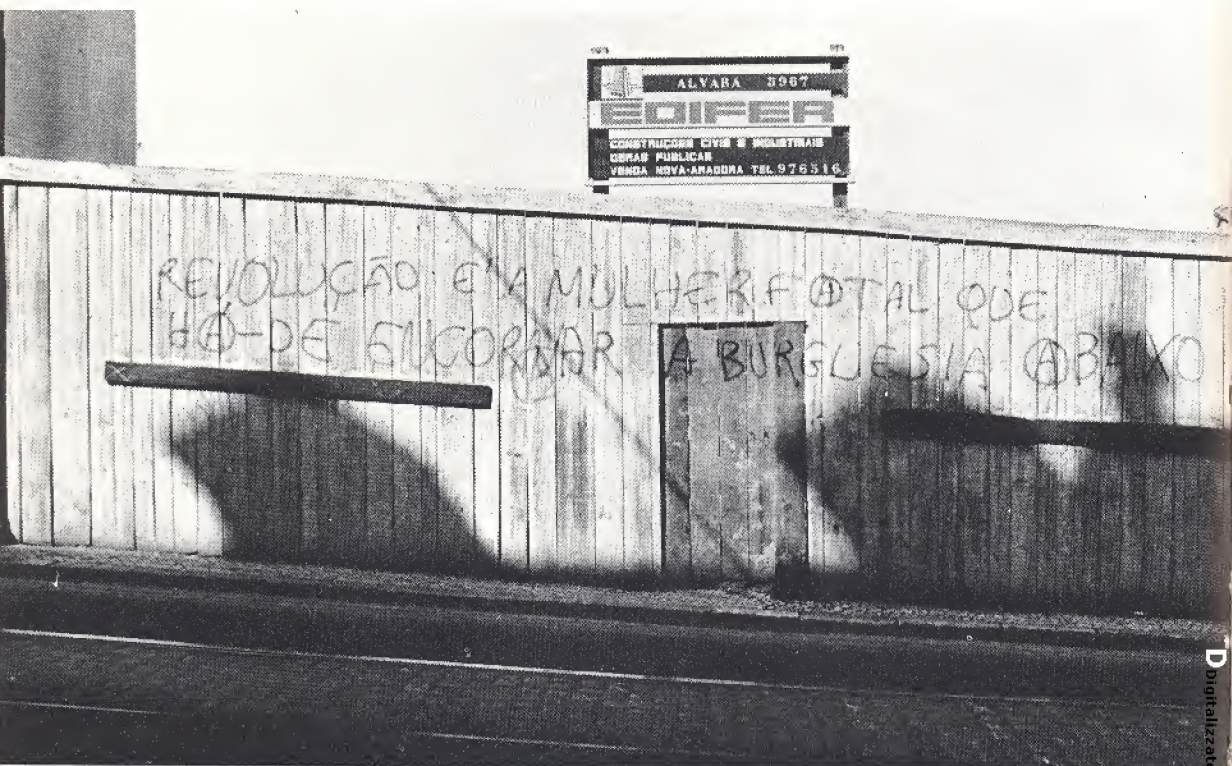 ALVARA 5967
EDIFER
CONSTRUÇÕES CIVIS E INDUSTRIAIS
OBRAS PUBLICAS
VENDA NOVA-AMADORA TEL. 976516
REVOLUÇÃO É A MULHER FATAL QUE
HÁ-DE ENCORNAR A BURGUESIA ABAIXO
Digitalizzato